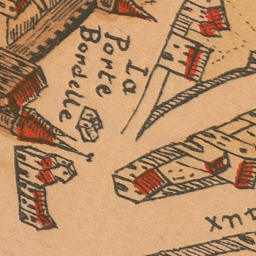 La
Porte
Bordelle
aux